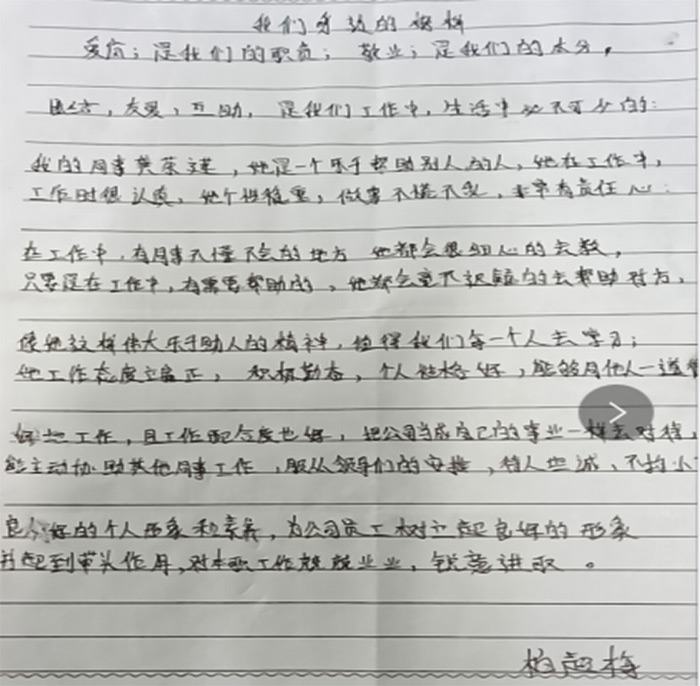 我们学习的榜样
爱岗；是我们的职责；敬业；是我们的本分，
团结，友爱，互助，是我们工作中，生活中必不可少的：
我的同事樊荣莲，她是一个乐于帮助别人的人，她在工作中，
工作时很认真，她个性稳重，做事不慌不乱，非常有责任心：
在工作中，有同事不懂不会的地方 她都会很细心的去教，
只要是在工作中，有需要帮助的，她都会毫不迟疑的去帮助对方，
像她这样伟大乐于助人的精神，值得我们每一个人去学习；
她工作态度端正，积极勤奋，个人性格好，能够同他人一道
好地工作，且工作配合度也好，把公司当成自己的事业一样去对待，
能主动协助其他同事工作，服从领导们的安排，待人忠诚、不拘小
良好的个人形象和素养，为公司员工树立起良好的形象
并起到带头作用，对本职工作兢兢业业，锐意进取。
柏超梅